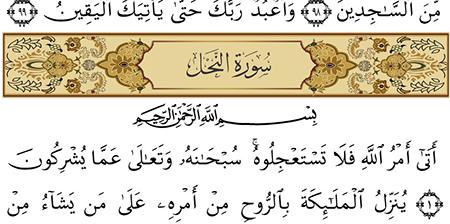 مِّنَ السَّـٰجِدِينَ ٩٨ وَاعْبُدْ رَبَّكَ حَتَّىٰ يَأْتِيَكَ الْيَقِينُ ٩٩
سُورَةُ النَّحْلِ
بِسْمِ اللَّهِ الرَّحْمَٰنِ الرَّحِيمِ
أَتَىٰٓ أَمْرُ اللَّهِ فَلَا تَسْتَعْجِلُوهُ ۚ سُبْحَـٰنَهُۥ وَتَعَـٰلَىٰ عَمَّا يُشْرِكُونَ
١ يُنَزِّلُ الْمَلَـٰٓئِكَةَ بِالرُّوحِ مِنْ أَمْرِهِۦ عَلَىٰ مَن يَشَآءُ مِنْ